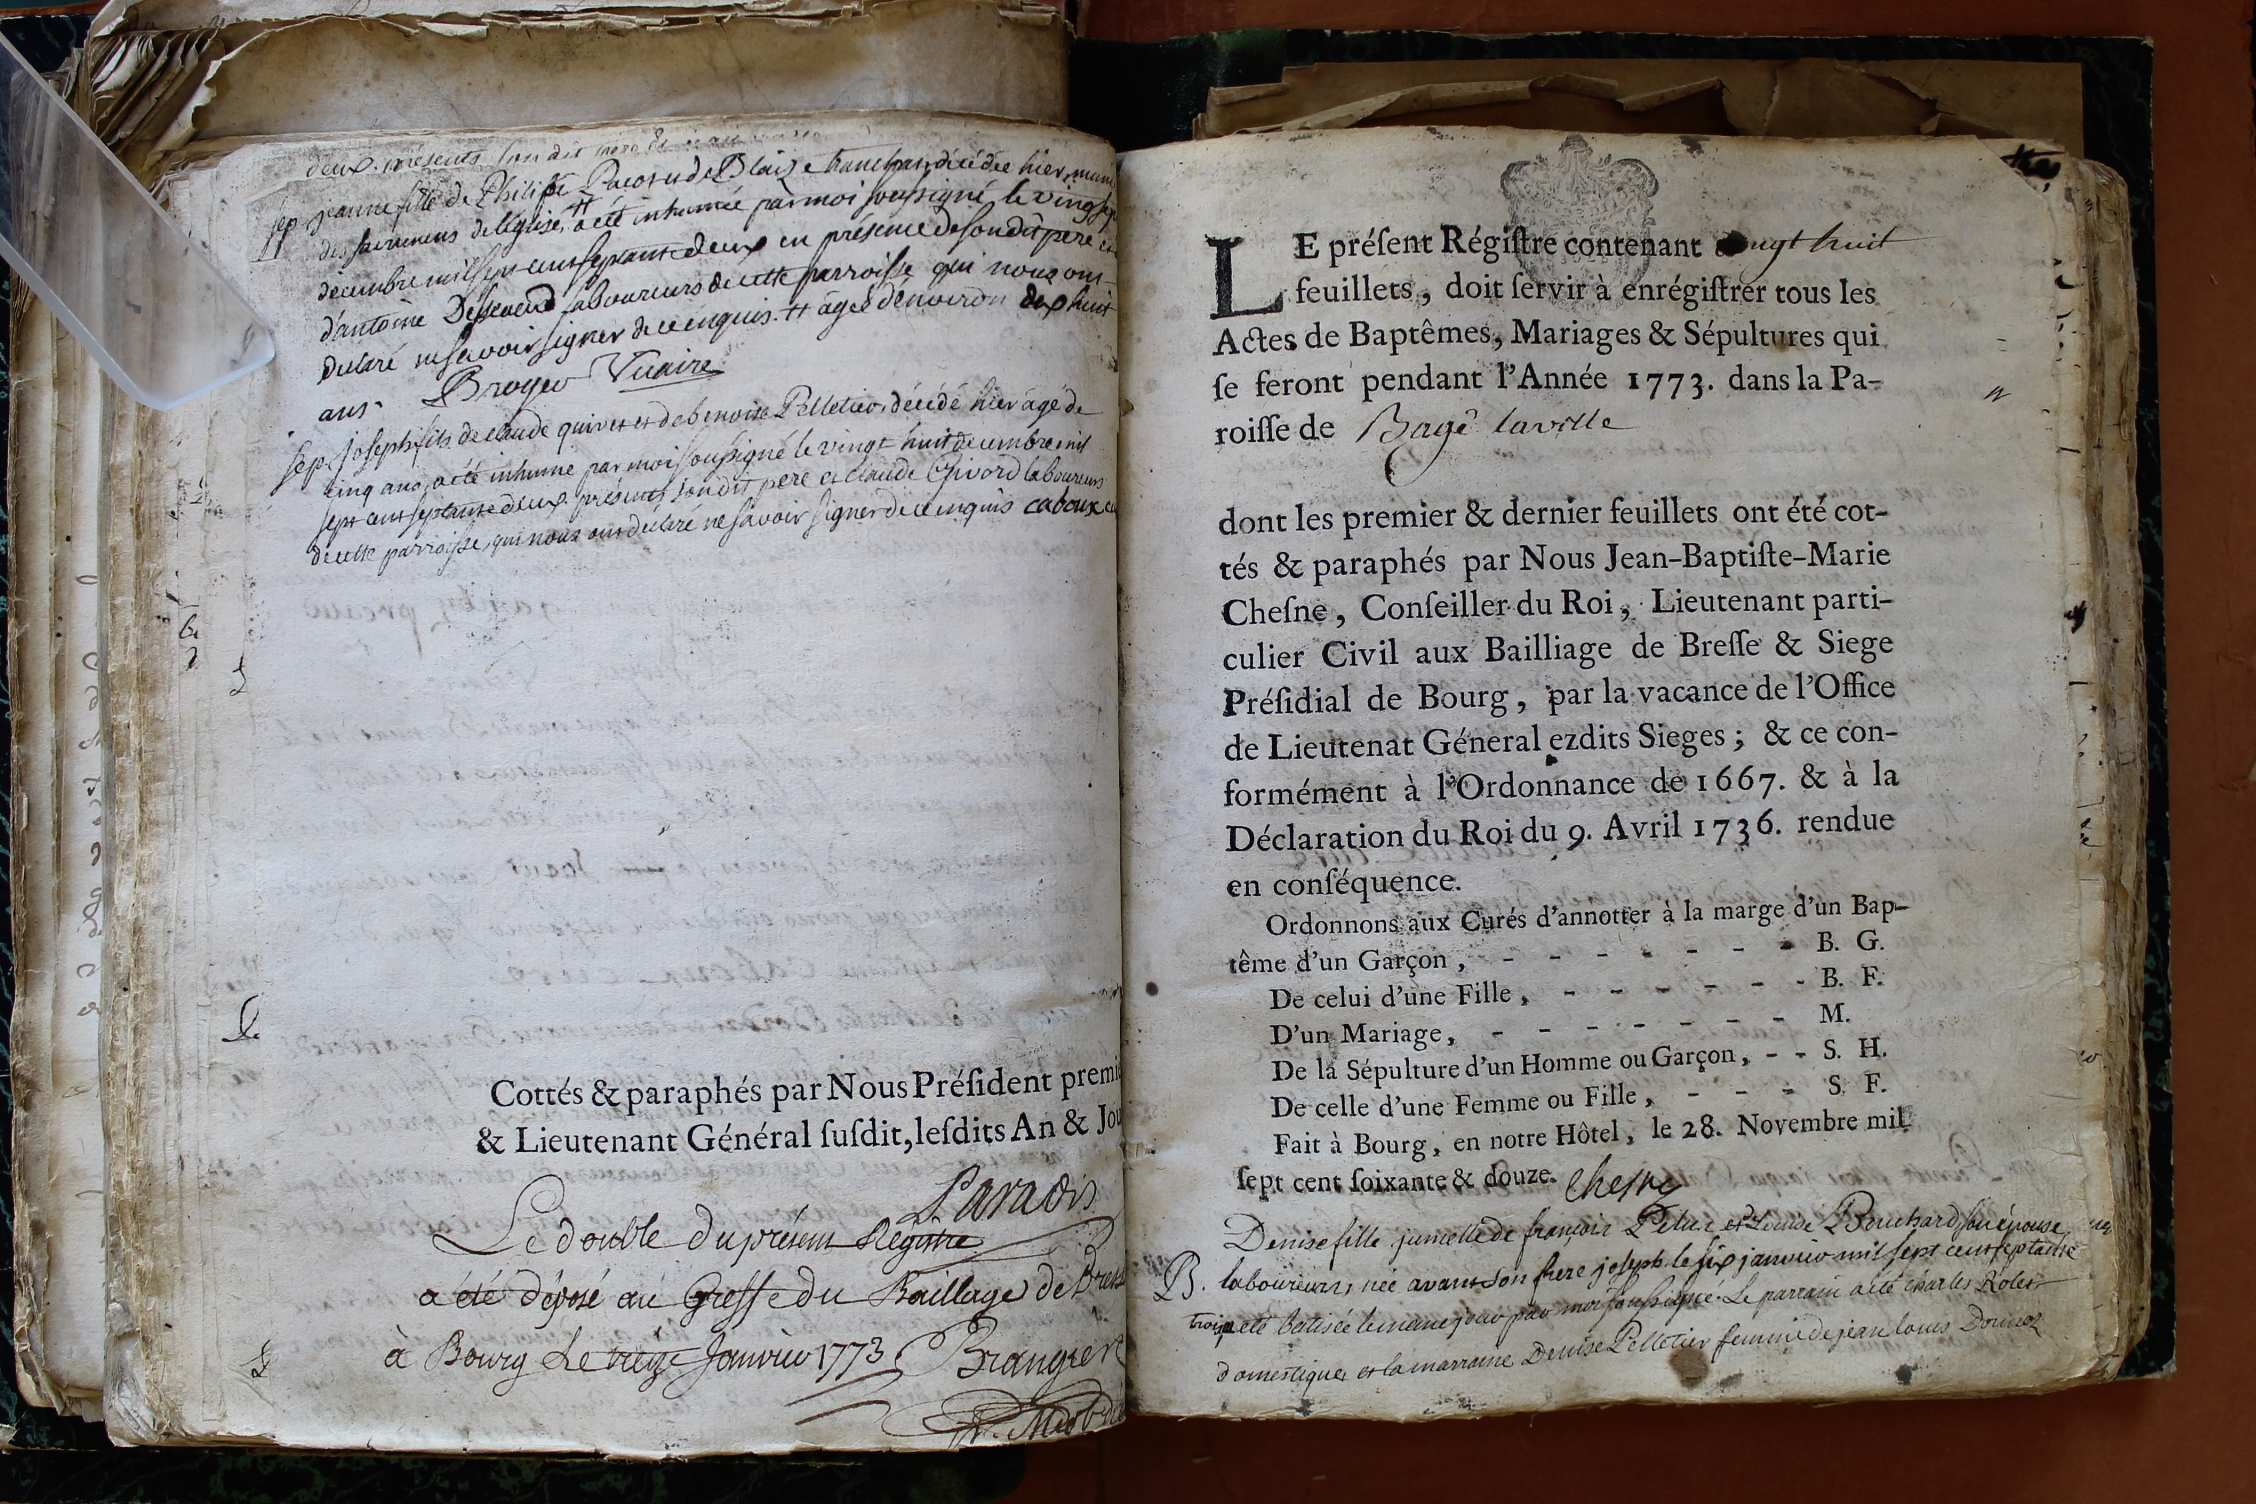 deux. présents son dit
sep jeanne fille de Philipe Pacot et de Blaise tranchan, décédée hier, munie
des sacremens de l'église, # a été inhumée par moi soussigné le vingt sept
decembre mil sept cent septante deux en présence de son dit pere et
d'antoine Desseaud laboureurs de cette parroisse qui nous ont
declaré ne savoir signer de ce enquis. # agée d'environ dix huit
ans. Broyer Vicaire
sep. joseph fils de claude quivet et de benoite Pelletier, décédé hier âgé de
cinq ans, a été inhumé par moi soussigné le vingt huit decembre mil
sept cent septante deux. présents son dit pere et claude Chivord laboureurs
de cette parroisse, qui nous ont déclaré ne savoir signer de ce enquis caboux
Cottés & paraphés par Nous Préſident premie
& Lieutenant Général ſuſdit, leſdits An & Jou
Paradis
Le double du présent Régistre
a été déposé au Greffe du Bailliage de Bresse
à Bourg Le treize Janvier 1773 Brangier
LE préſent Régiſtre contenant vingt huit
feuillets, doit ſervir à enrégiſtrer tous les
Actes de Baptêmes, Mariages & Sépultures qui
ſe feront pendant l'Année 1773. dans la Pa-
roiſſe de Bagé laville
dont les premier & dernier feuillets ont été cot-
tés & paraphés par Nous Jean-Baptiſte-Marie
Cheſne, Conſeiller du Roi, Lieutenant parti-
culier Civil aux Bailliage de Breſſe & Siege
Préſidial de Bourg, par la vacance de l'Office
de Lieutenat Géneral ezdits Sieges; & ce con-
formément à l'Ordonnance de 1667. & à la
Déclaration du Roi du 9. Avril 1736. rendue
en conſéquence.
Ordonnons aux Curés d'annotter à la marge d'un Bap-
tême d'un Garçon, - - - - - - - B. G.
De celui d'une Fille, - - - - - - B. F.
D'un Mariage, - - - - - - - M.
De la Sépulture d'un Homme ou Garçon, - - S. H.
De celle d'une Femme ou Fille, - - - S. F.
Fait à Bourg, en notre Hôtel, le 28. Novembre mil
ſept cent ſoixante & douze. Chesne
Denise fille jumelle de françois Peluz et Louise Bouchard son épouse
B. laboureurs, née avant son frere joseph le six janvier mil sept cent septante
trois, a eté batisée le meme jour par moi soussigné. Le parrain a été Charles Rolet
domestique, et la marraine Denise Pelletier femme de jean louis Donnet